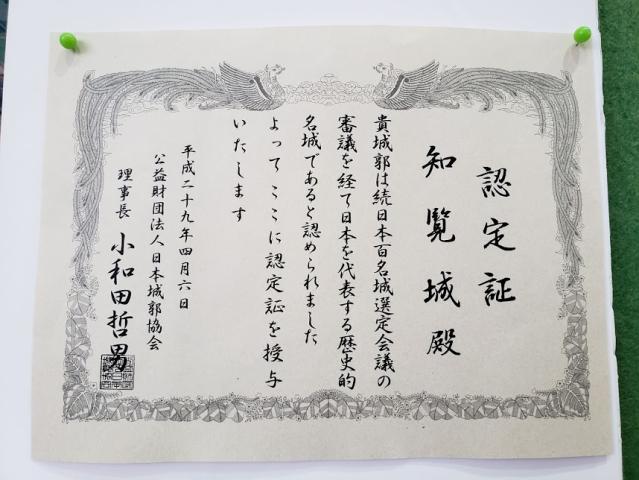 認定証
知覧城殿
貴城郭は続日本百名城選定会議の
審議を経て日本を代表する歴史的
名城であると認められました
よってここに認定証を授与
いたします
平成二十九年四月六日
公益財団法人日本城郭協会
理事長 小和田哲男